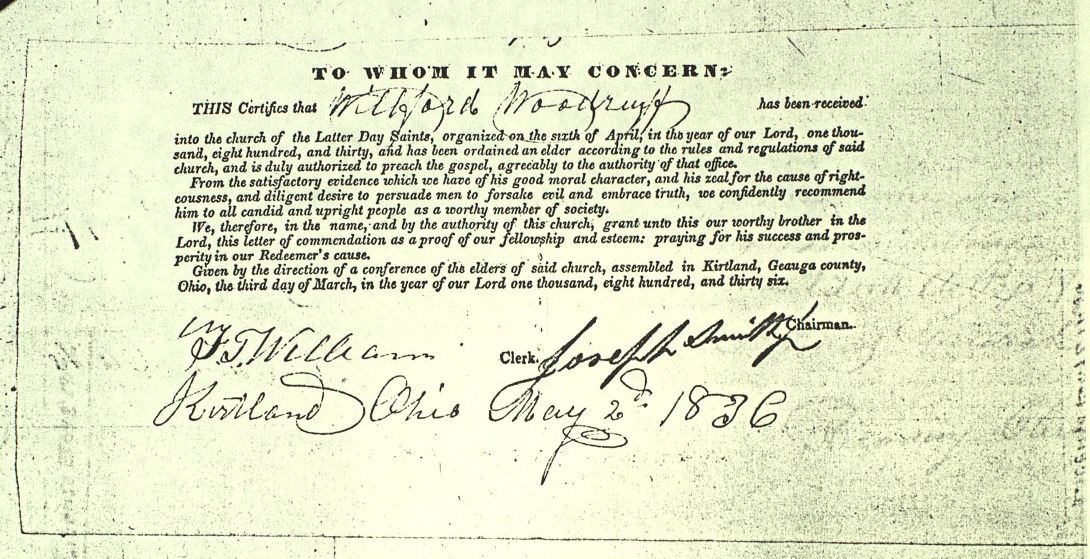 TO WHOM IT MAY CONCERN:
THIS Certifies that Willford Woodruff has been received
into the church of the Latter Day Saints, organized on the sixth of April, in the year of our Lord, one thou-
sand, eight hundred, and thirty, and has been ordained an elder according to the rules and regulations of said
church, and is duly authorized to preach the gospel, agreeably to the authority of that office.
From the satisfactory evidence which we have of his good moral character, and his zeal for the cause of right-
eousness, and diligent desire to persuade men to forsake evil and embrace truth, we confidently recommend
him to all candid and upright people as a worthy member of society.
We, therefore, in the name, and by the authority of this church, grant unto this our worthy brother in the
Lord, this letter of commendation as a proof of our fellowship and esteem: praying for his success and pros-
perity in our Redeemer's cause.
Given by the direction of a conference of the elders of said church, assembled in Kirtland, Geauga county,
Ohio, the third day of March, in the year of our Lord one thousand, eight hundred, and thirty six.
Joseph Smith Jr Chairman.
F G William Clerk.
Kirtland Ohio May 2d. 1836